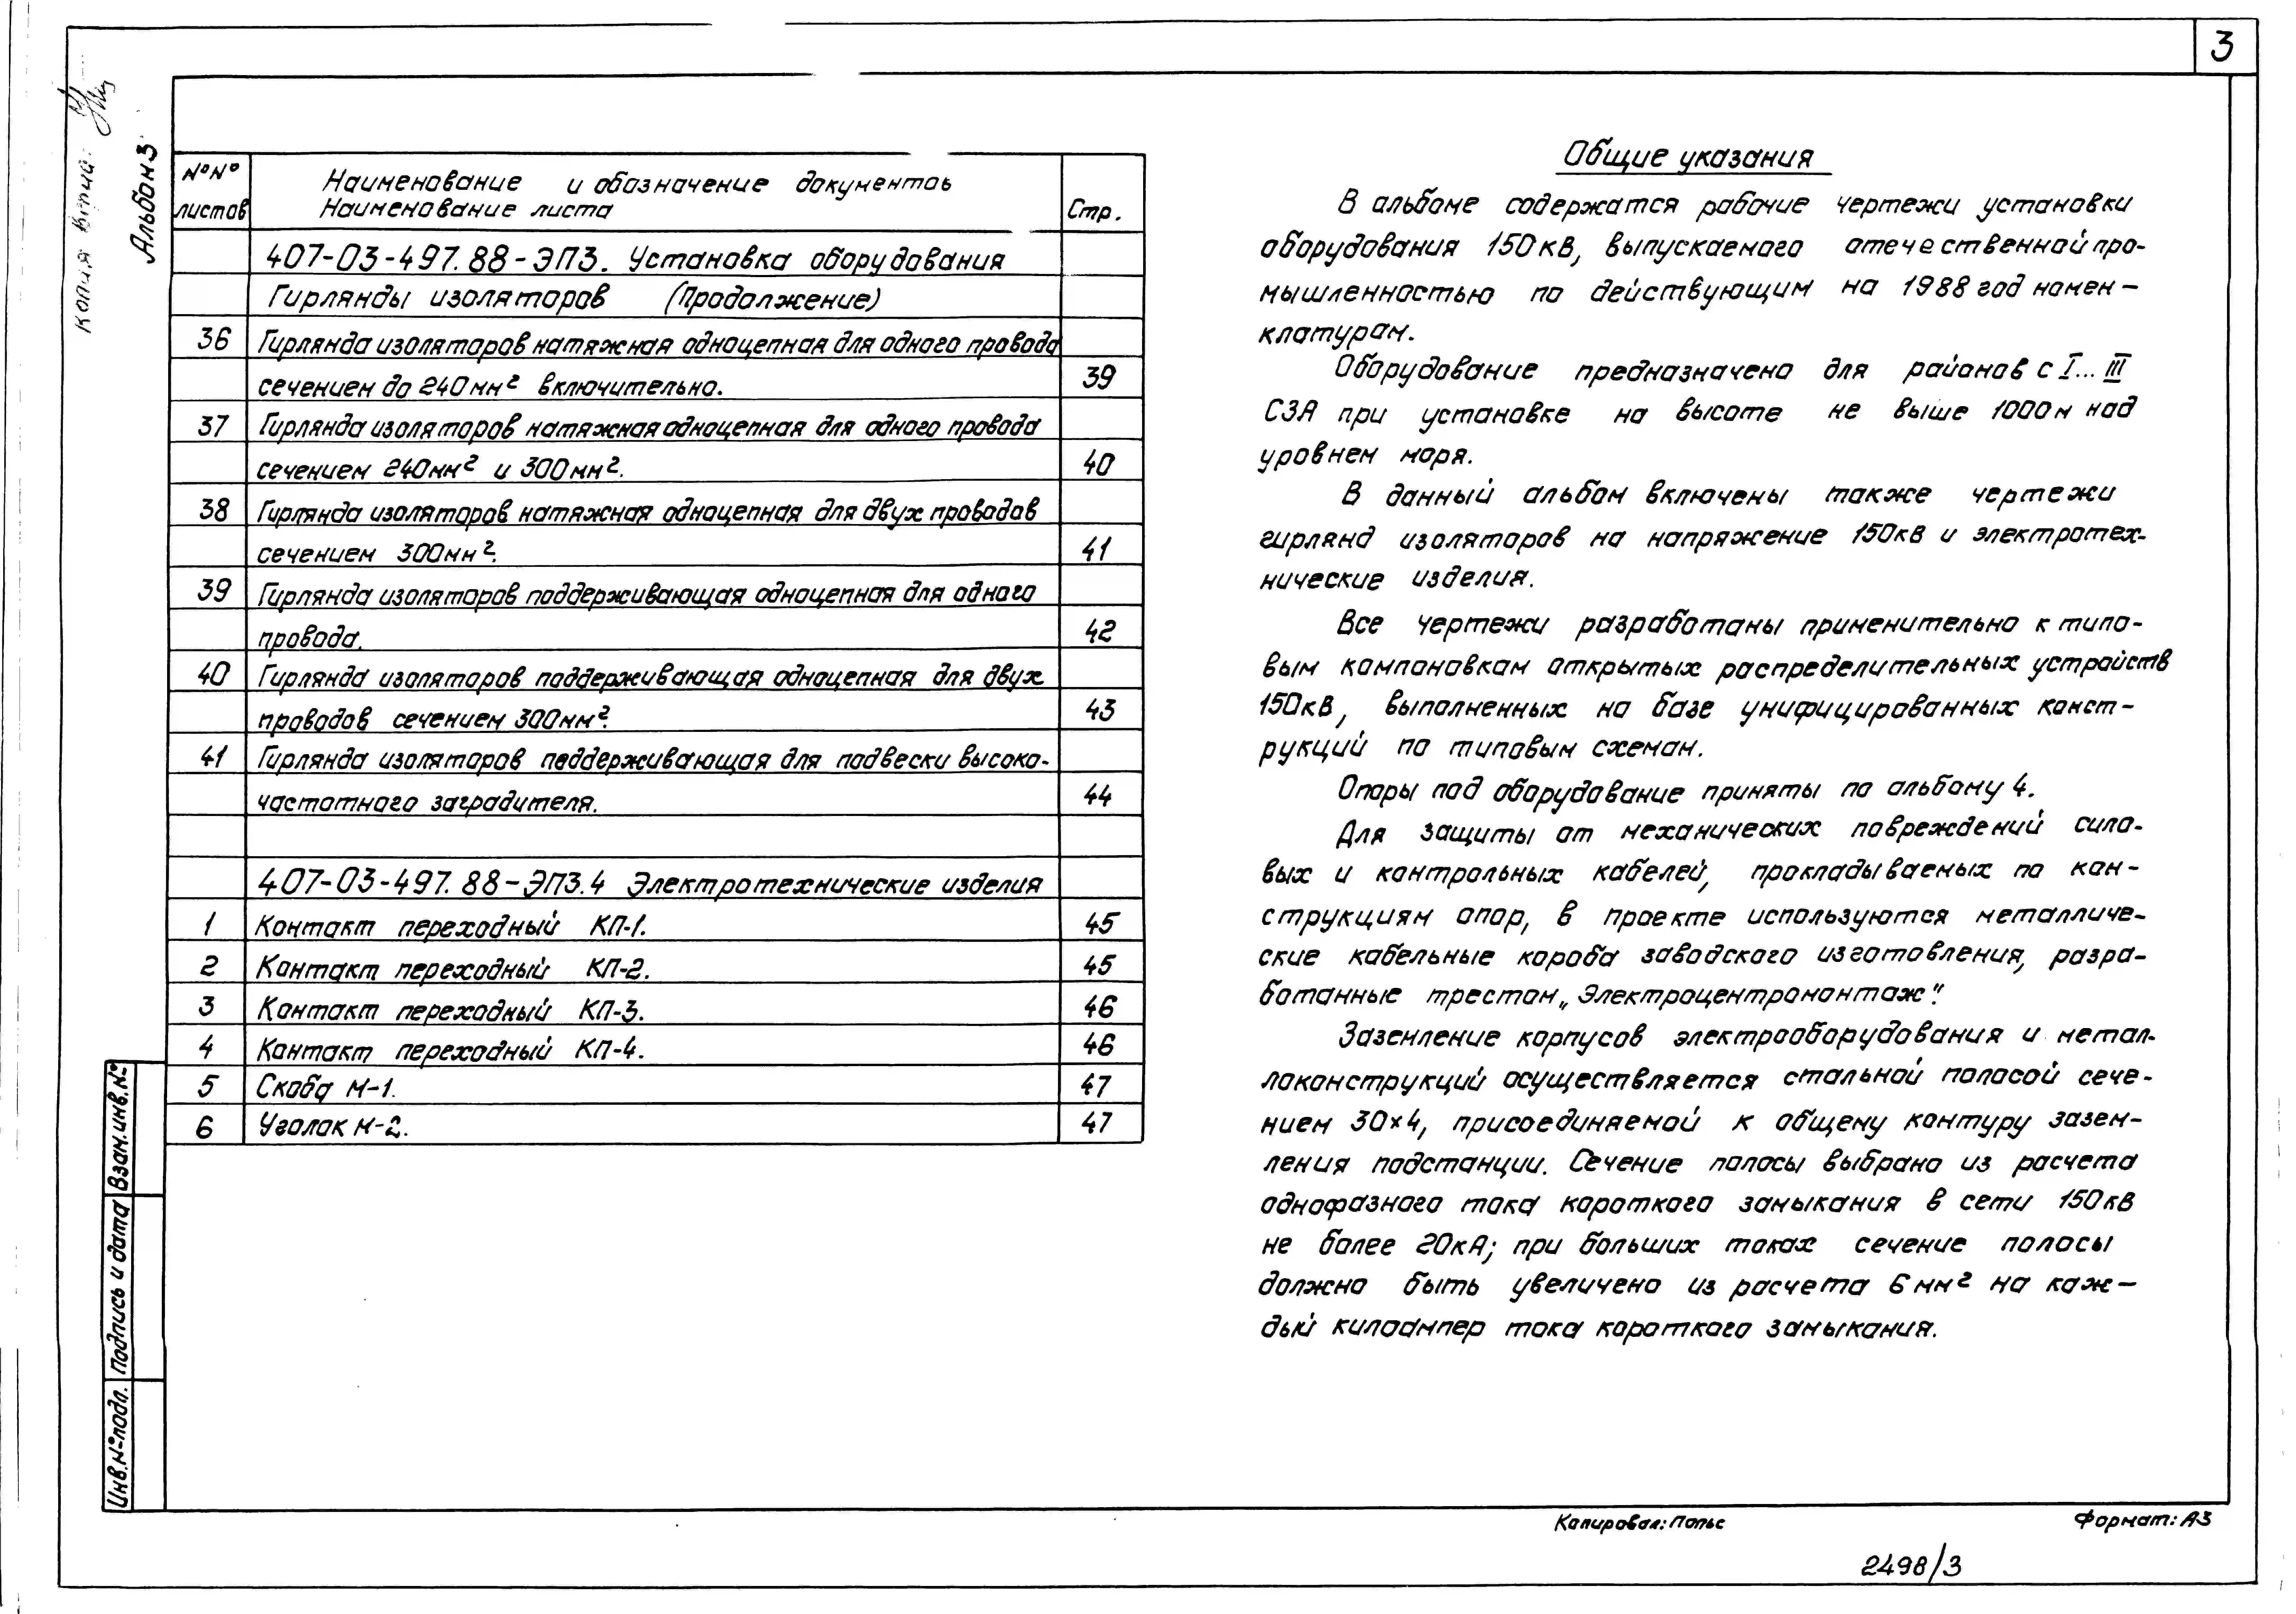 3
Альбом 3
№№ листов
Наименование и обозначение документов
Наименование листа
Стр.
407-03-497.88-ЭП3. Установка оборудования
Гирлянды изоляторов (Продолжение)
36 Гирлянда изоляторов натяжная одноцепная для одного провода
сечением до 240мм² включительно. 39
37 Гирлянда изоляторов натяжная одноцепная для одного провода
сечением 240мм² и 300мм². 40
38 Гирлянда изоляторов натяжная одноцепная для двух проводов
сечением 300мм². 41
39 Гирлянда изоляторов поддерживающая одноцепная для одного
провода. 42
40 Гирлянда изоляторов поддерживающая одноцепная для двух
проводов сечением 300мм². 43
41 Гирлянда изоляторов поддерживающая для подвески высоко-
частотного заградителя. 44
407-03-497.88-ЭП3.4 Электротехнические изделия
1 Контакт переходный КП-1. 45
2 Контакт переходный КП-2. 45
3 Контакт переходный КП-3. 46
4 Контакт переходный КП-4. 46
5 Скоба М-1. 47
6 Уголок М-2. 47
Общие указания
В альбоме содержатся рабочие чертежи установки
оборудования 150кВ, выпускаемого отечественной про-
мышленностью по действующим на 1988 год номен-
клатурам.
Оборудование предназначено для районов с I... III
СЗА при установке на высоте не выше 1000м над
уровнем моря.
В данный альбом включены также чертежи
гирлянд изоляторов на напряжение 150кВ и электротех-
нические изделия.
Все чертежи разработаны применительно к типо-
вым компоновкам открытых распределительных устройств
150кВ, выполненных на базе унифицированных конст-
рукций по типовым схемам.
Опоры под оборудование приняты по альбому 4.
Для защиты от механических повреждений сило-
вых и контрольных кабелей, прокладываемых по кон-
струкциям опор, в проекте используются металличе-
ские кабельные короба заводского изготовления, разра-
ботанные трестом „Электроцентромонтаж".
Заземление корпусов электрооборудования и метал-
локонструкций осуществляется стальной полосой сече-
нием 30×4, присоединяемой к общему контуру зазем-
ления подстанции. Сечение полосы выбрано из расчета
однофазного тока короткого замыкания в сети 150кВ
не более 20кА; при больших токах сечение полосы
должно быть увеличено из расчета 6мм² на каж-
дый килоампер тока короткого замыкания.
Взам.инв.№
Подпись и дата
Инв.№подл.
Копировал: Попьс
Формат: А3
2498/3